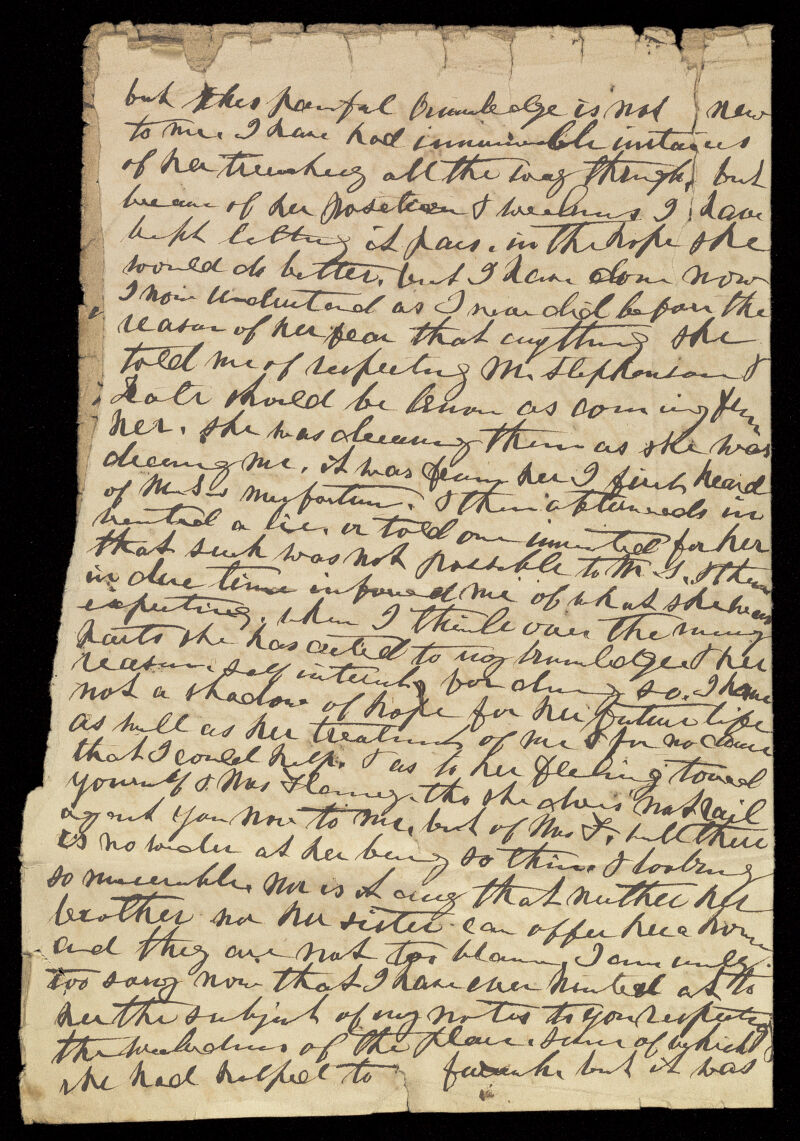 but this painful knowledge is not new
to me. I have had innumerable instances
of her treachery all the way through, but
because of her position & weakness I have
kept letting it pass, in the hope she
would do better, but I have done now
I now understand as I never did before the
reason of her fear that anything she
told me of respecting Mr Stephenson &
Kate should be known as coming from
her. She was deceiving them as she was
deceiving me. it was from her I first heard
of Mr S-s misfortune. & then afterwards in
vented a lie, or told one invented for her
that such was not possible to Mr S. & then
in due time informed me of what she was
expecting. when I think over the many
parts she has acted to my knowledge & her
reasons self interest, for doing so. I have
not a shadow of hope for her future life
as well as her treatment of me & for no cause
that I could help. & as to her feeling toward
yourself & Mrs Fleming. tho she does not rail
against you now to me, but of Mrs F. well there
is no wonder at her being so thin & looking
so miserable. Nor is it any that neither her
brother nor her sister can offer her a home
and they are not to blame. I am only
too sorry now that I have ever hinted at to
her the subject of my notes to you respecting
the wickedness of the place. some of which
she had helped to but it was